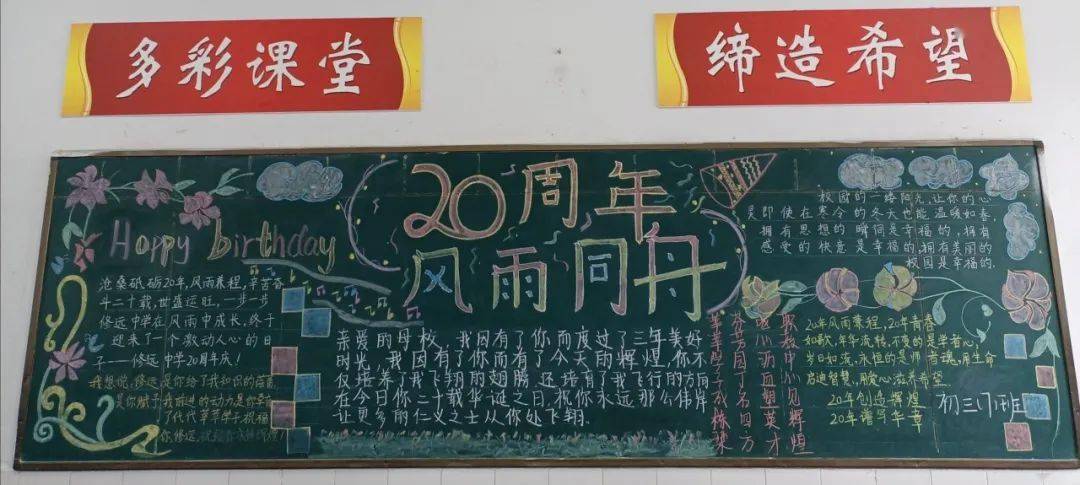 多彩课堂
缔造希望
20周年
风雨同舟
Happy birthday
沧桑砥砺20年,风雨乘程,辛苦奋
斗二十载,世盛运旺,一步一步
修远中学在风雨中成长,终于
迎来了一个激动人心的日
子——修远中学20周年庆!
我想说,修远是你给了我知识的
是你赋予我前进的动力是你
了代代莘莘学子祝福
你修远,
亲爱的母校,我因有了你而度过了三年美好
时光,我因有了你而有了今天的辉煌,你不
仅培养了我飞翔的翅膀,还培育了我飞行的方向
在今日你二十载华诞之日,祝你永远那么伟岸
让更多的仁义之士从你处飞翔.
中小见辉煌
呕心沥血塑英才
园丁不四方
莘莘学子成栋梁
校园的一络阳光,让你的心
灵即使在寒冷的冬天也能温暖如春
拥有思想的瞬间是幸福的,拥有
感受的快意是幸福的,拥有美丽的
校园是幸福的.
20年风雨兼程,20年青春
如歌,年华流转,不变的是学者心;
岁月如流,永恒的是师者魂,用生命
启迪智慧,用爱心滋养希望
20年创造辉煌
20年谱写华章
初三(7)班